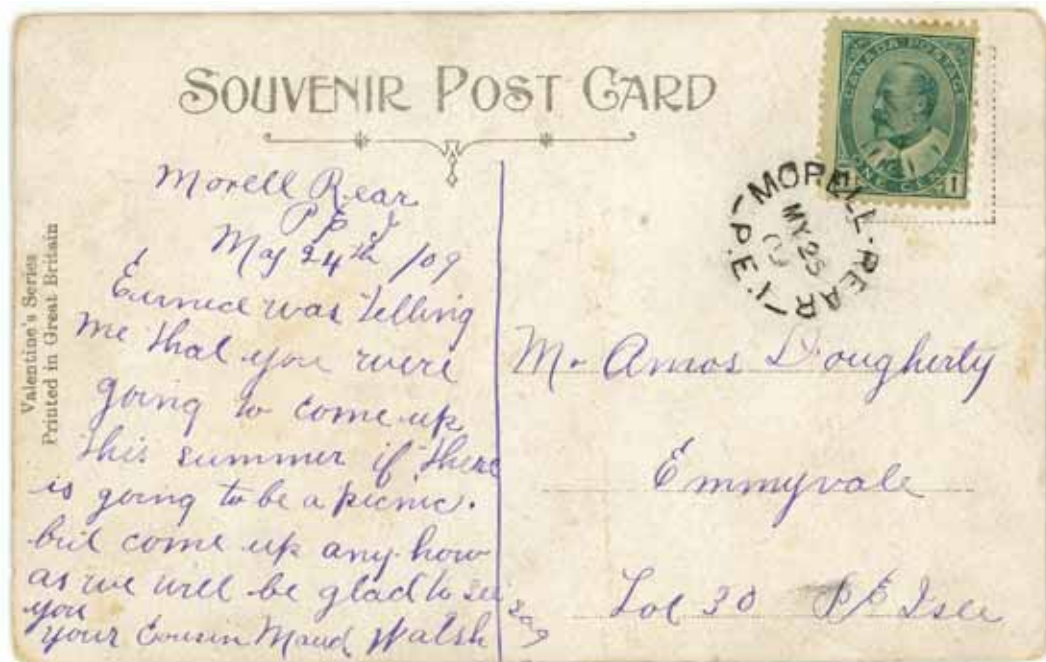 SOUVENIR POST CARD
Valentine's Series
Printed in Great Britain
Morell Rear
P E I
May 24th /09
Eunice was telling
me that you were
going to come up
this summer if there
is going to be a picnic.
but come up any how
as we will be glad to see
you
your Cousin Maud Walsh
CANADA POSTAGE
ONE CENT
1
MORELL-REAR
MY 25
09
P.E.I.
Mr Amos Dougherty
Emmyvale
Lot 30 P E Isle
209